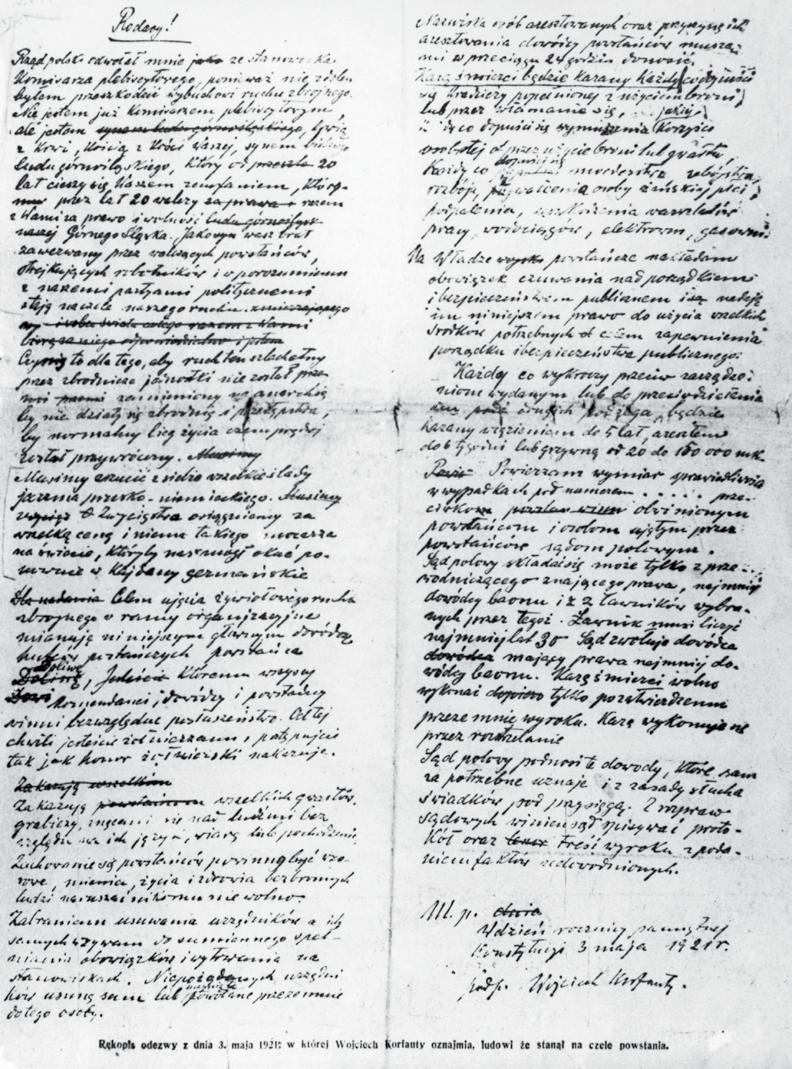 Rodacy!
Rząd polski odwołał mnie jako ze stanowiska
Komisarza plebiscytowego, ponieważ nie zdoła-
łem przeszkodzić wybuchowi ruchu zbrojnego.
Nie jestem już komisarzem plebiscytowym,
ale jestem synem ludu górnośląskiego,
z krwi, kością z kości waszej, synem
ludu górnośląskiego, który od przeszło 20
lat cieszy się Waszem zaufaniem, który
przez lat 20 walczy za prawa razem
z Wami za prawo i wolność ludu górnośląs
naszej Górnego Śląska. Jako wasz brat
zawezwany przez walczących powstańców,
strejkujących robotników i w porozumieniu
z naszemi partyami politycznemi
staję na czele naszego ruchu
razem z Wami
biorę za niego odpowiedzialność i jestem
Czynię to dla tego, aby ruch ten szlachetny
przez zbrodnicze jednostki nie został prze
zamieniony w anarchię
by nie działy się zbrodnie i
by normalny bieg życia czem prędzej
został przywrócony. Musimy
Musimy zrzucić z siebie wszelkie ślady
jarzma prusko-niemieckiego. Musimy
Zwycięstwo osiągniemy za
wszelką cenę i niema takiego mocarza
na świecie, któryby nas mógł okuć po-
nownie w kajdany germańskie
Dla nadania Celem ujęcia żywiołowego ruchu
zbrojnego w ramy organizacyjne
mianuję niniejszym głównym dowódcą
powstańczych powstańca
Doliwę
Doliwę, któremu wszyscy
Komendanci, dowódcy i powstańcy
winni bezwzględne posłuszeństwo. Od tej
chwili jesteście żołnierzami, postępujcie
tak jak honor żołnierski nakazuje.
Zakazuję wszelkim
Zakazuję powstańcom wszelkich gwałtów,
grabieży, znęcania się nad ludźmi bez
względu na ich język, wiarę lub pochodzenie
Zachowanie się powstańców powinno być wzo-
rowe, mienia, życia i zdrowia bezbronnych
ludzi naruszać nikomu nie wolno.
Zabraniam usuwania urzędników a ich
samych wzywam do sumiennego speł-
niania obowiązków i wytrwania na
stanowiskach. Niepożądanych urzędni
ków usunę sam lub powołane przezemnie
do tego osoby.
Nazwiska osób aresztowanych oraz przyczynę ich
aresztowania dowódcy powstańców muszą
mi w przeciągu 24 godzin donosić.
Karą śmierci będzie karany każdy co dopuści
się kradzieży popełnionej z użyciem broni,
lub przez włamanie się,
i co dopuści się wymuszenia korzyści
osobistej przez użycie broni lub gwałtu,
Każdy co dopuści się morderstwa, zabójstwa
rozboju, zgwałcenia osoby żeńskiej płci,
podpalenia, uszkodzenia warsztatów
pracy, wodociągów, elektrowni, gazowni.
Na Władze wojsko powstańcze nakładam
obowiązek czuwania nad porządkiem
i bezpieczeństwem publicznem i nadaję
im niniejszem prawo do użycia wszelkich
środków potrzebnych celem zapewnienia
porządku i bezpieczeństwa publicznego.
Każdy co wykroczy przeciw zarządze-
niom wydanym lub do przeciwdziałania
drugich podżega, będzie
karany więzieniem do 5 lat, aresztem
do 6 tygodni lub grzywną od 20 do 100 000 mk.
Powie Powierzam wymiar sprawiedliwości
w wypadkach pod numerem . . . . . prze-
ciwko obwinionym
powstańcom i osobom ujętym przez
powstańców, sądom polowym.
Sąd polowy składać się może tylko z prze-
wodniczącego znającego prawa, najmniej
dowódcy baonu i z 2 ławników wybra-
nych przez tegoż. Ławnik musi liczyć
najmniej lat 30. Sąd zwołuje dowódca
dowódca mający prawa najmniej do-
wódcy baonu. Karę śmierci wolno
wykonać dopiero tylko po zatwierdzeniu
przezemnie wyroku. Karę wykonuje się
przez rozstrzelanie
Sąd polowy podnosi te dowody, które sam
za potrzebne uznaje i z zasady słucha
świadków pod przysięgą. Z rozpraw
sądowych winien sąd spisywać proto-
kół oraz treść wyroku z poda-
niem faktów udowodnionych.
M. p. dnia
W dzień rocznicy pamiętnej
Konstytucji 3 maja 1921 r.
podp. Wojciech Korfanty.
Rękopis odezwy z dnia 3. maja 1921: w której Wojciech Korfanty oznajmia, ludowi że stanął na czele powstania.